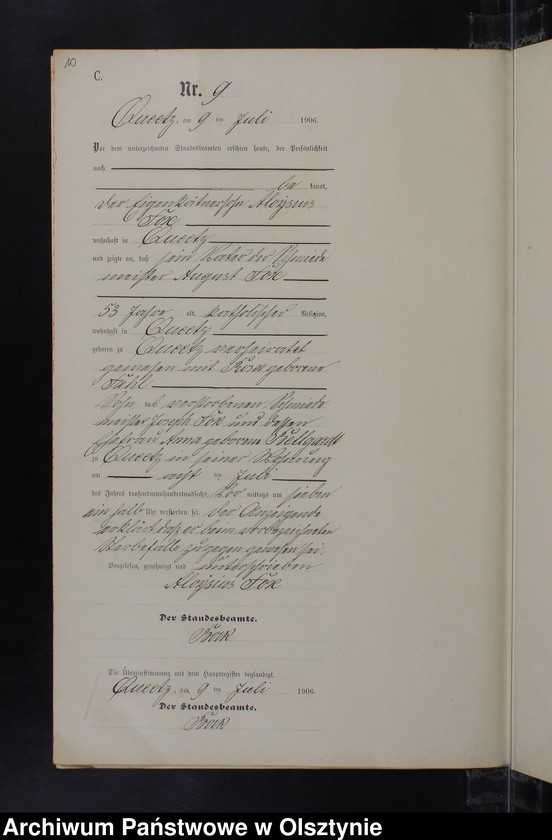 10
C.
Nr. 9
Queetz, am 9 ten Juli 1906.
Vor dem unterzeichneten Standesbeamten erschien heute, der Persönlichkeit
nach
be kannt,
der Eigenkätnersohn Aloysius
Fox
wohnhaft in Queetz
und zeigte an, daß sein Vater der Schmiede
meister August Fox
53 Jahre alt, katholischer Religion,
wohnhaft in Queetz
geboren zu Queetz verheiratet
gewesen mit Rosa geborene
Fahl
Sohn des verstorbenen Schmiede
meister Joseph Fox und dessen
Ehefrau Anna geborene
zu Queetz in seiner Wohnung
am acht ten Juli
des Jahres tausendneunhundertundsechs, Vor mittags um sieben
ein halb Uhr verstorben sei. Der Anzeigende
erklärt daß er beim vorbezeichneten
Sterbefalle zugegen gewesen sei.
Vorgelesen, genehmigt und unterschrieben
Aloysius Fox
Der Standesbeamte.
Bork
Die Übereinstimmung mit dem Hauptregister beglaubigt.
Queetz, am 9 ten Juli 1906.
Der Standesbeamte.
Bork
Archiwum Państwowe w Olsztynie